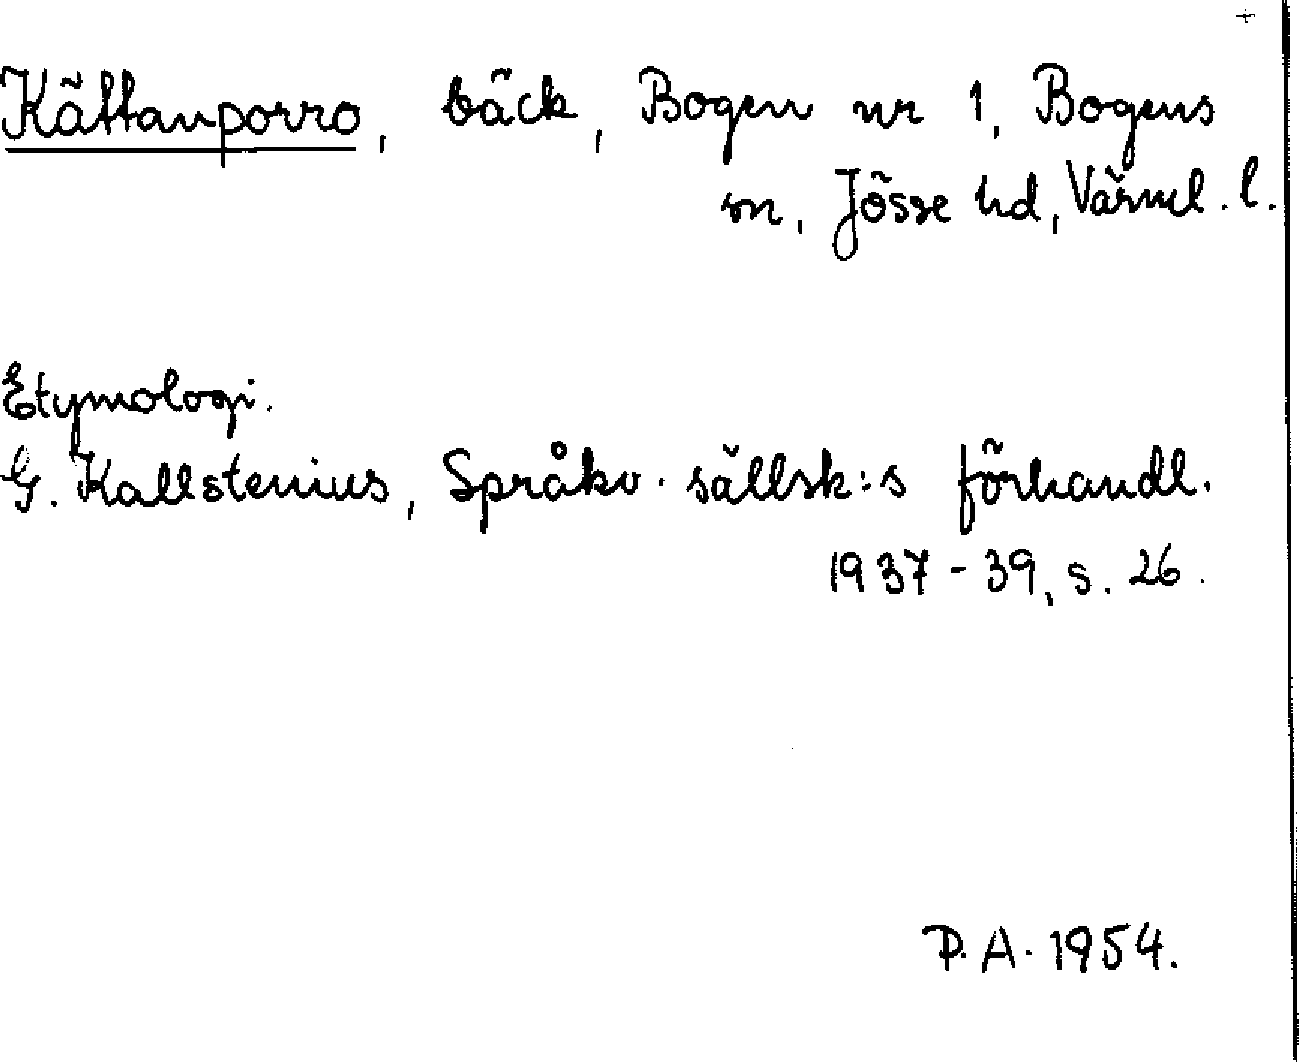 +
Kättanporro, bäck, Bogen nr 1, Bogens
sn, Jösse hd, Värml. l.
Etymologi.
G. Kallstenius, Språkv. sällsk:s förhandl.
1937-39, s. 26.
P. A. 1954.